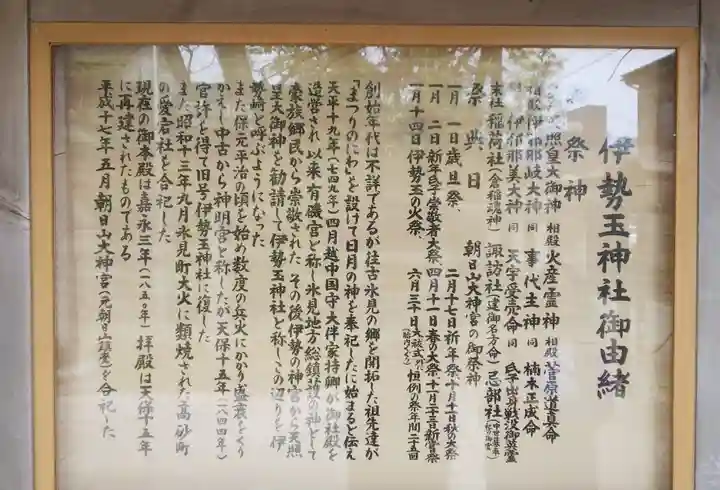 伊勢玉神社御由緒
祭神
照皇大御神 相殿 火産霊神 相殿 菅原道真命
相殿 伊邪那岐大神 同 事代主神 同 楠木正成命
同 伊邪那美大神 同 天宇受売命 同 氏子出身戦没御英霊
末社 稲荷社(倉稲魂神) 諏訪社(建御名方命) 忌部社
祭典日 朝日山大神宮の御祭神
一月一日歳旦祭 二月十七日新年祭・十月十日秋の大祭
一月二日新年氏子崇敬者大祭 四月十一日春の大祭・十一月二十三日新嘗祭
一月十四日伊勢玉の火祭 六月三十日大祓式 恒例の祭年間二十五回
創始年代は不詳であるが往古氷見の郷を開拓した祖先達が
「まつりのにわ」を設けて日月の神を奉祀したに始まると伝え
天平十九年(七四九年)四月越中国守大伴家持卿が御社殿を
造営され以来有磯宮と称し氷見地方総鎮護の神として
豪族郷民から崇敬された その後伊勢の神宮から天照
皇大御神を勧請して伊勢玉神社と称しこの辺りを伊
勢崎と呼ぶようになった
また保元平治の頃を始め数度の兵火にかかり盛衰をくり
かえし中古から神明宮と称したが天保十五年(一八四四年)
官許を得て旧号伊勢玉神社に復した
また昭和十三年九月氷見町大火に類焼された高砂町
の愛宕社を合祀した
現在の御本殿は嘉永三年(一八五〇年)拝殿は天保十五年
に再建されたものである
平成十七年五月 朝日山大神宮(元朝日山鎮座)を合祀した